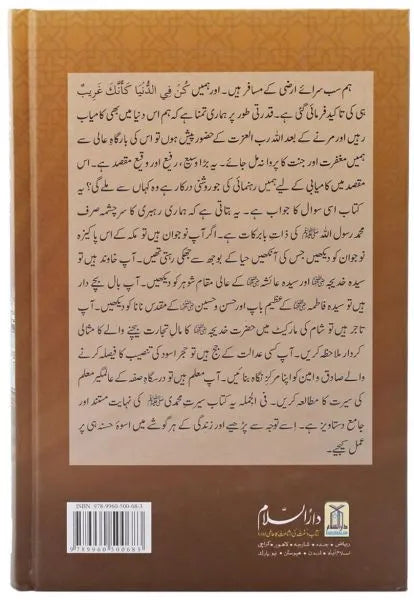 ہم سب سرائے ارضی کے مسافر ہیں۔ اور ہمیں كُنْ فِي الدُّنْيَا كَأَنَّكَ غَرِيبٌ
ہی کی تاکید فرمائی گئی ہے۔ قدرتی طور پر ہماری تمنا ہے کہ ہم اس دنیا میں بھی کامیاب
رہیں اور مرنے کے بعد اللہ رب العزت کے حضور پیش ہوں تو اس کی بارگاہِ عالی سے
ہمیں مغفرت اور جنت کا پروانہ مل جائے۔ یہ بڑا وسیع، رفیع اور وقیع مقصد ہے۔ اس
مقصد میں کامیابی کے لیے ہمیں رہنمائی کی جو روشنی درکار ہے وہ کہاں سے ملے گی؟ یہ
کتاب اسی سوال کا جواب ہے۔ یہ بتاتی ہے کہ ہماری رہبری کا سرچشمہ صرف
محمد رسول اللہ ﷺ کی ذاتِ بابرکات ہے۔ اگر آپ نوجوان ہیں تو مکہ کے اس پاکیزہ
نوجوان کو دیکھیں جس کی آنکھیں حیا کے بوجھ سے جھکی رہتی تھیں۔ آپ خاوند ہیں تو
سیدہ خدیجہ اور سیدہ عائشہ کے عالی مقام شوہر کو دیکھیں۔ آپ بال بچے دار
ہیں تو سیدہ فاطمہ کے عظیم باپ اور حسن و حسین کے مقدس نانا کو دیکھیں۔ آپ
تاجر ہیں تو شام کی مارکیٹ میں حضرت خدیجہ کا مالِ تجارت بیچنے والے کا مثالی
کردار ملاحظہ کریں۔ آپ کسی عدالت کے جج ہیں تو حجر اسود کی تنصیب کا فیصلہ کرنے
والے صادق و امین کو اپنا مرکز نگاہ بنائیں۔ آپ معلم ہیں تو درسگاہِ صفہ کے عالمگیر معلم
کی سیرت کا مطالعہ کریں۔ فی الجملہ یہ کتاب سیرتِ محمدی ﷺ کی نہایت مستند اور
جامع دستاویز ہے۔ اسے توجہ سے پڑھیے اور زندگی کے ہر گوشے میں اسوۂ حسنہ ہی پر
عمل کیجیے۔
ISBN: 978-9960-500-68-3
9 789960 500683
دارالسلام
کتاب و سنت کی اشاعت کا عالمی ادارہ
ریاض • جدہ • شارجہ • لاہور • کراچی
اسلام آباد • لندن • ہیوسٹن • نیو یارک
DARUSSALAM